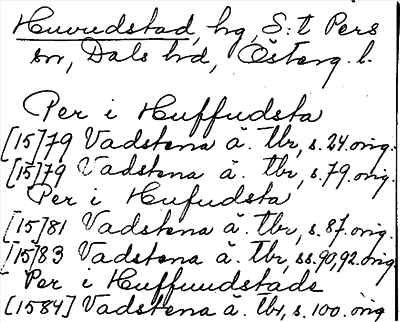 Huvudstad, hg, S:t Pers
sn, Dals hd, Österg. l.
Per i Huffudsta
[15]79 Vadstena ä. tbr, s. 24. orig.
[15]79 Vadstena ä. tbr, s. 79. orig.
Per i Hufudsta
[15]81 Vadstena ä. tbr, s. 87. orig.
[15]83 Vadstena ä. tbr, ss. 90, 92. orig.
Per i Huffuudstade
[1584] Vadstena ä. tbr, s. 100. orig